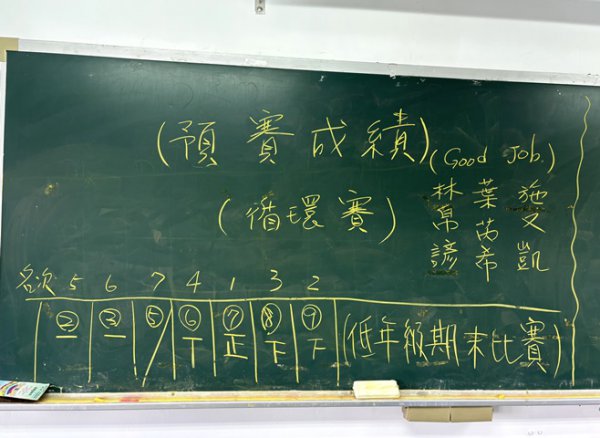 (預賽成績)
(循環賽)
(Good Job.)
林帛諺
葉芮希
施旻凱
名次 5 6 7 4 1 3 2
② ③ ⑤ ⑥ ⑦ ⑧ ⑨
一 一 / 丅 正 下 丅
(低年級期末比賽)